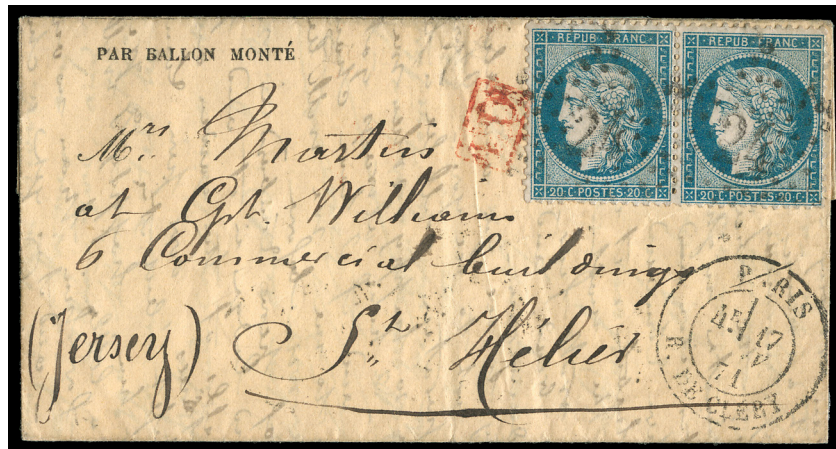 PAR BALLON MONTÉ
REPUB·FRANC·
20·C·POSTES·20·C
REPUB·FRANC·
20·C·POSTES·20·C
P.D.
Mrs Martin
at Cpt. Williams
6 Commercial buildings
(Jersey) St. Hélier
PARIS
17
71
R. DE CLERY